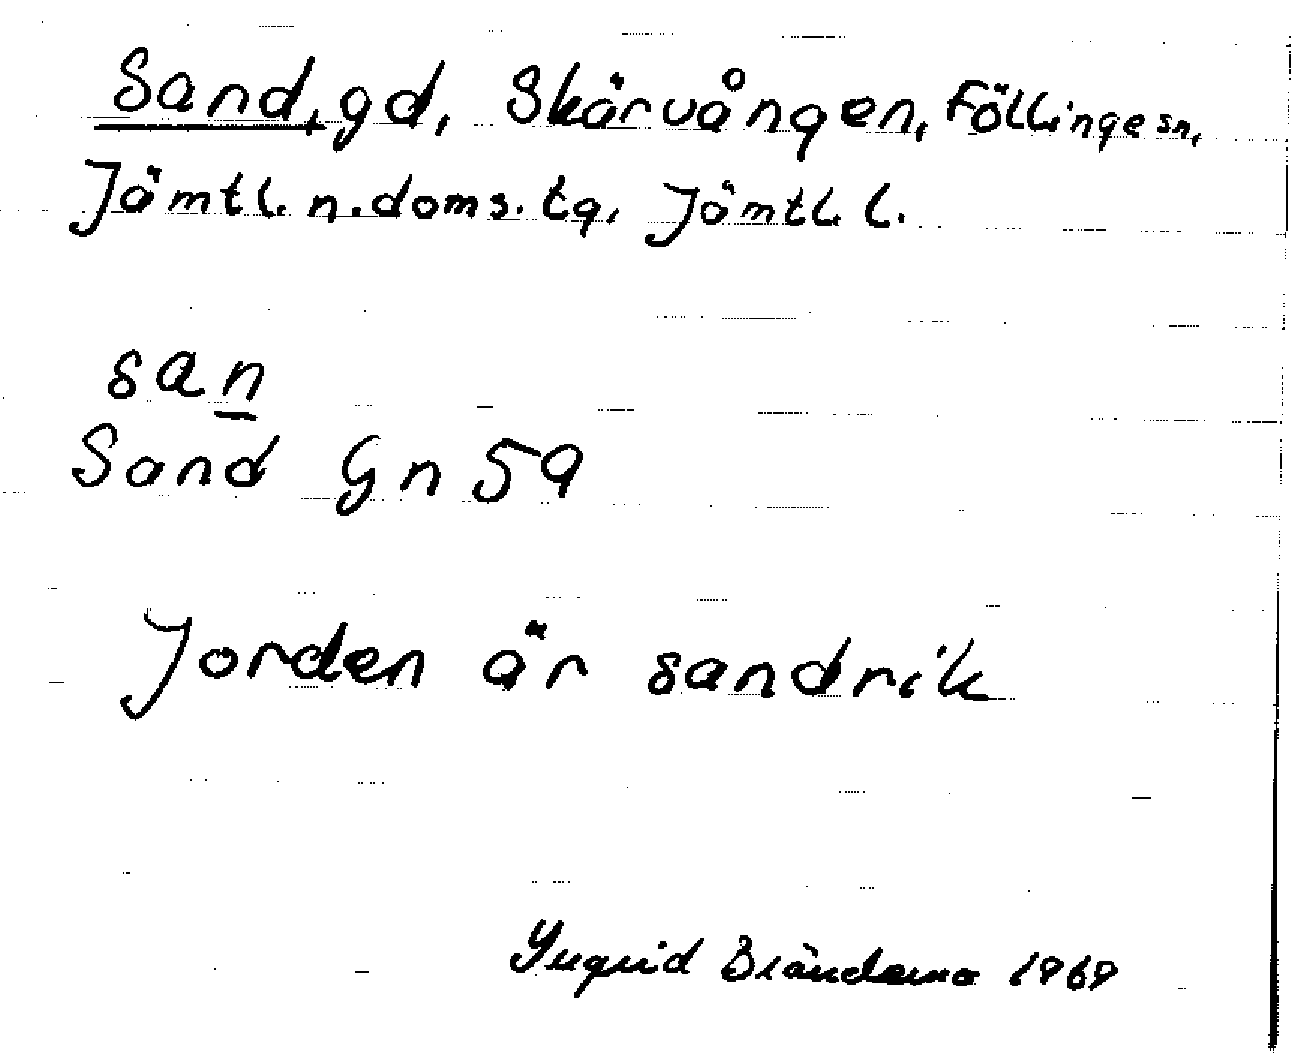 Sand, gd, Skärvången, Föllinge sn,
Jämtl. n. doms. tg, Jämtl. l.
san
Sand Gn 59
Jorden är sandrik
Yngvid 1969